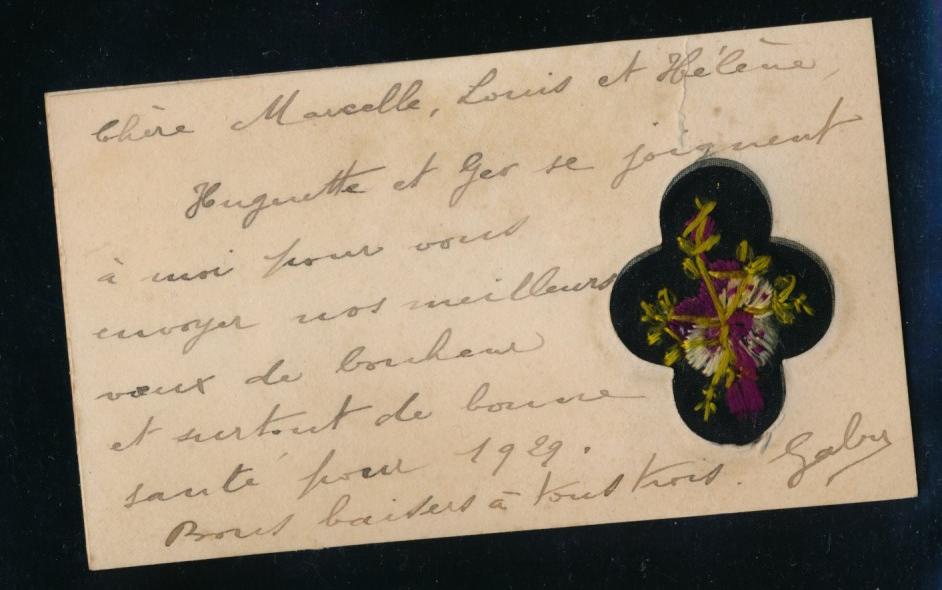 Chère Marcelle, Louis et Hélène,
Huguette et Geo se joignent
à moi pour vous
envoyer nos meilleurs
vœux de bonheur
et surtout de bonne
santé pour 1929.
Bons baisers à tous trois. Gaby